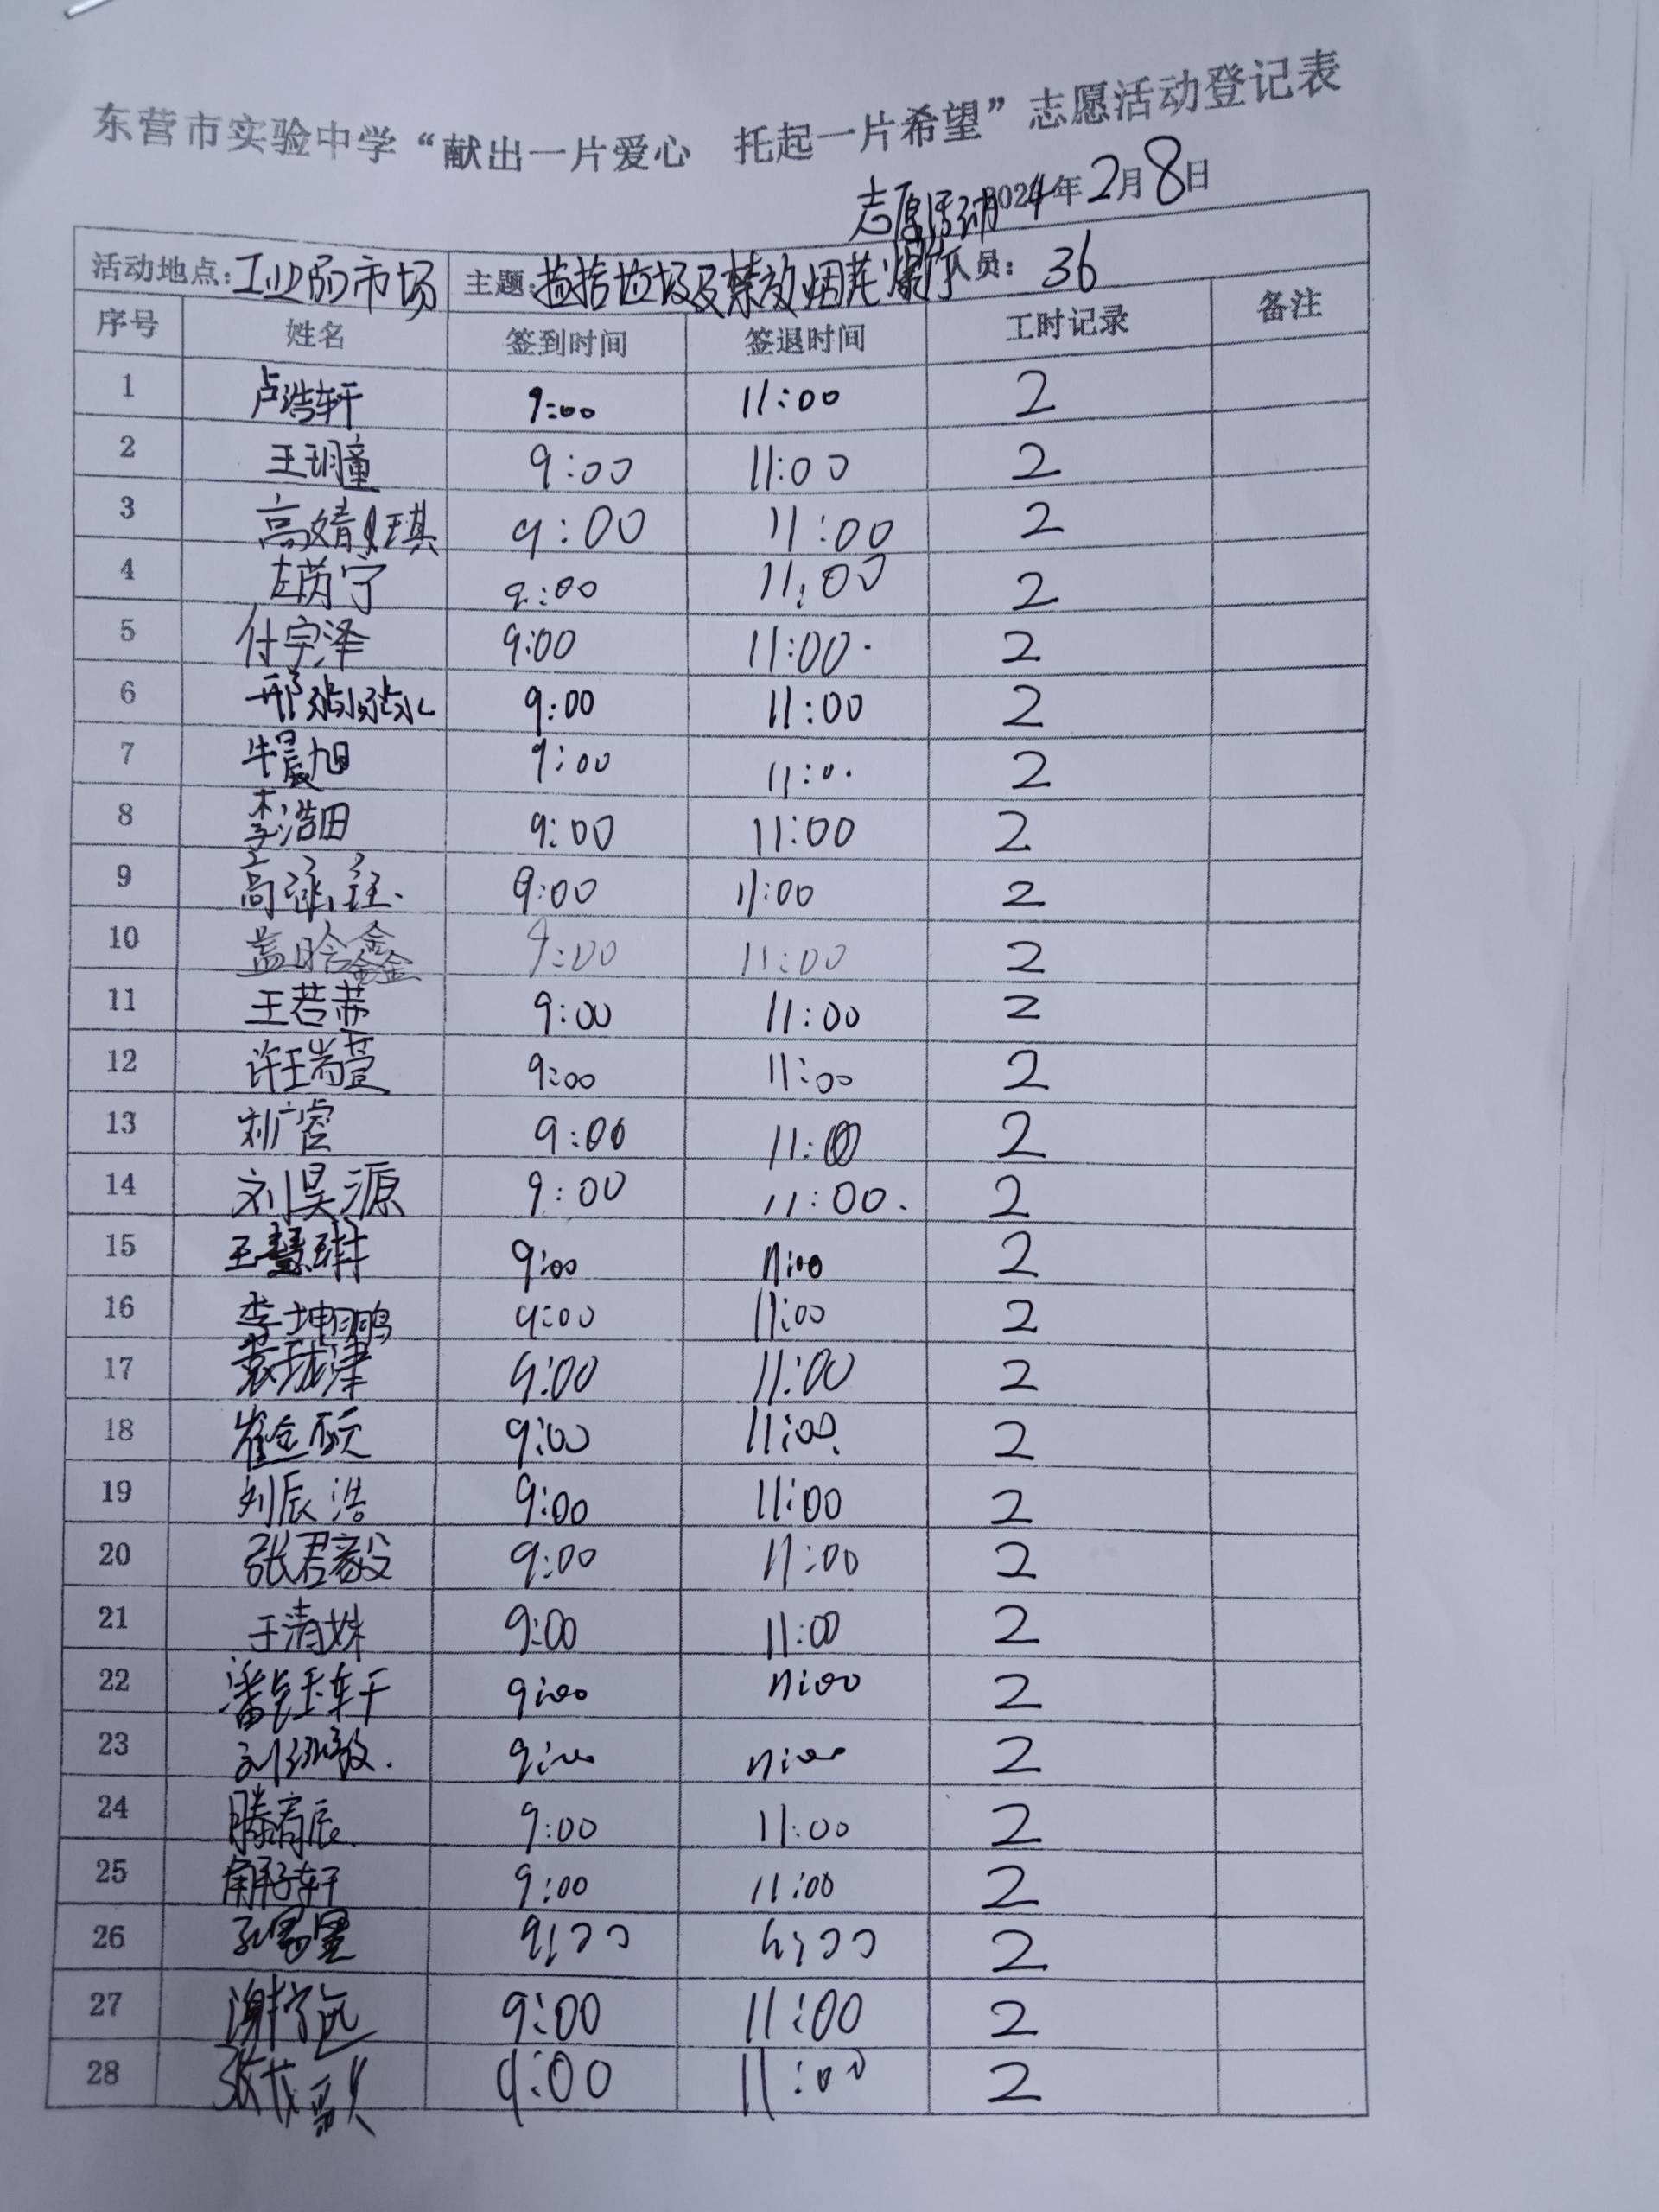 东营市实验中学“献出一片爱心 托起一片希望”志愿活动登记表
志愿活动 2024年2月8日
活动地点: 工业品市场 主题: 捡拾垃圾及禁放烟花爆竹 人员: 36
序号 姓名 签到时间 签退时间 工时记录 备注
1 卢浩轩 9:00 11:00 2
2 王玥童 9:00 11:00 2
3 高婧琪 9:00 11:00 2
4 左芮宁 9:00 11:00 2
5 付宇泽 9:00 11:00· 2
6 邢淼淼 9:00 11:00 2
7 牛晨旭 9:00 11:0. 2
8 李浩田 9:00 11:00 2
9 高 9:00 11:00 2
10 盖晗鑫 9:00 11:00 2
11 王若 9:00 11:00 2
12 许瑞萱 9:00 11:00 2
13 刘广睿 9:00 11:00 2
14 刘昊源 9:00 11:00. 2
15 王慧琳 9:00 11:00 2
16 李坤鹏 9:00 11:00 2
17 袁珑津 9:00 11:00 2
18 崔金硕 9:00 11:00. 2
19 刘辰浩 9:00 11:00 2
20 张君毅 9:00 11:00 2
21 于清姝 9:00 11:00 2
22 潘钰轩 9:00 11:00 2
23 刘 9:00 11:00 2
24 滕宥辰 9:00 11:00 2
25 解子轩 9:00 11:00 2
26 9:00 11:00 2
27 谢宁远 9:00 11:00 2
28 张 9:00 11:00 2